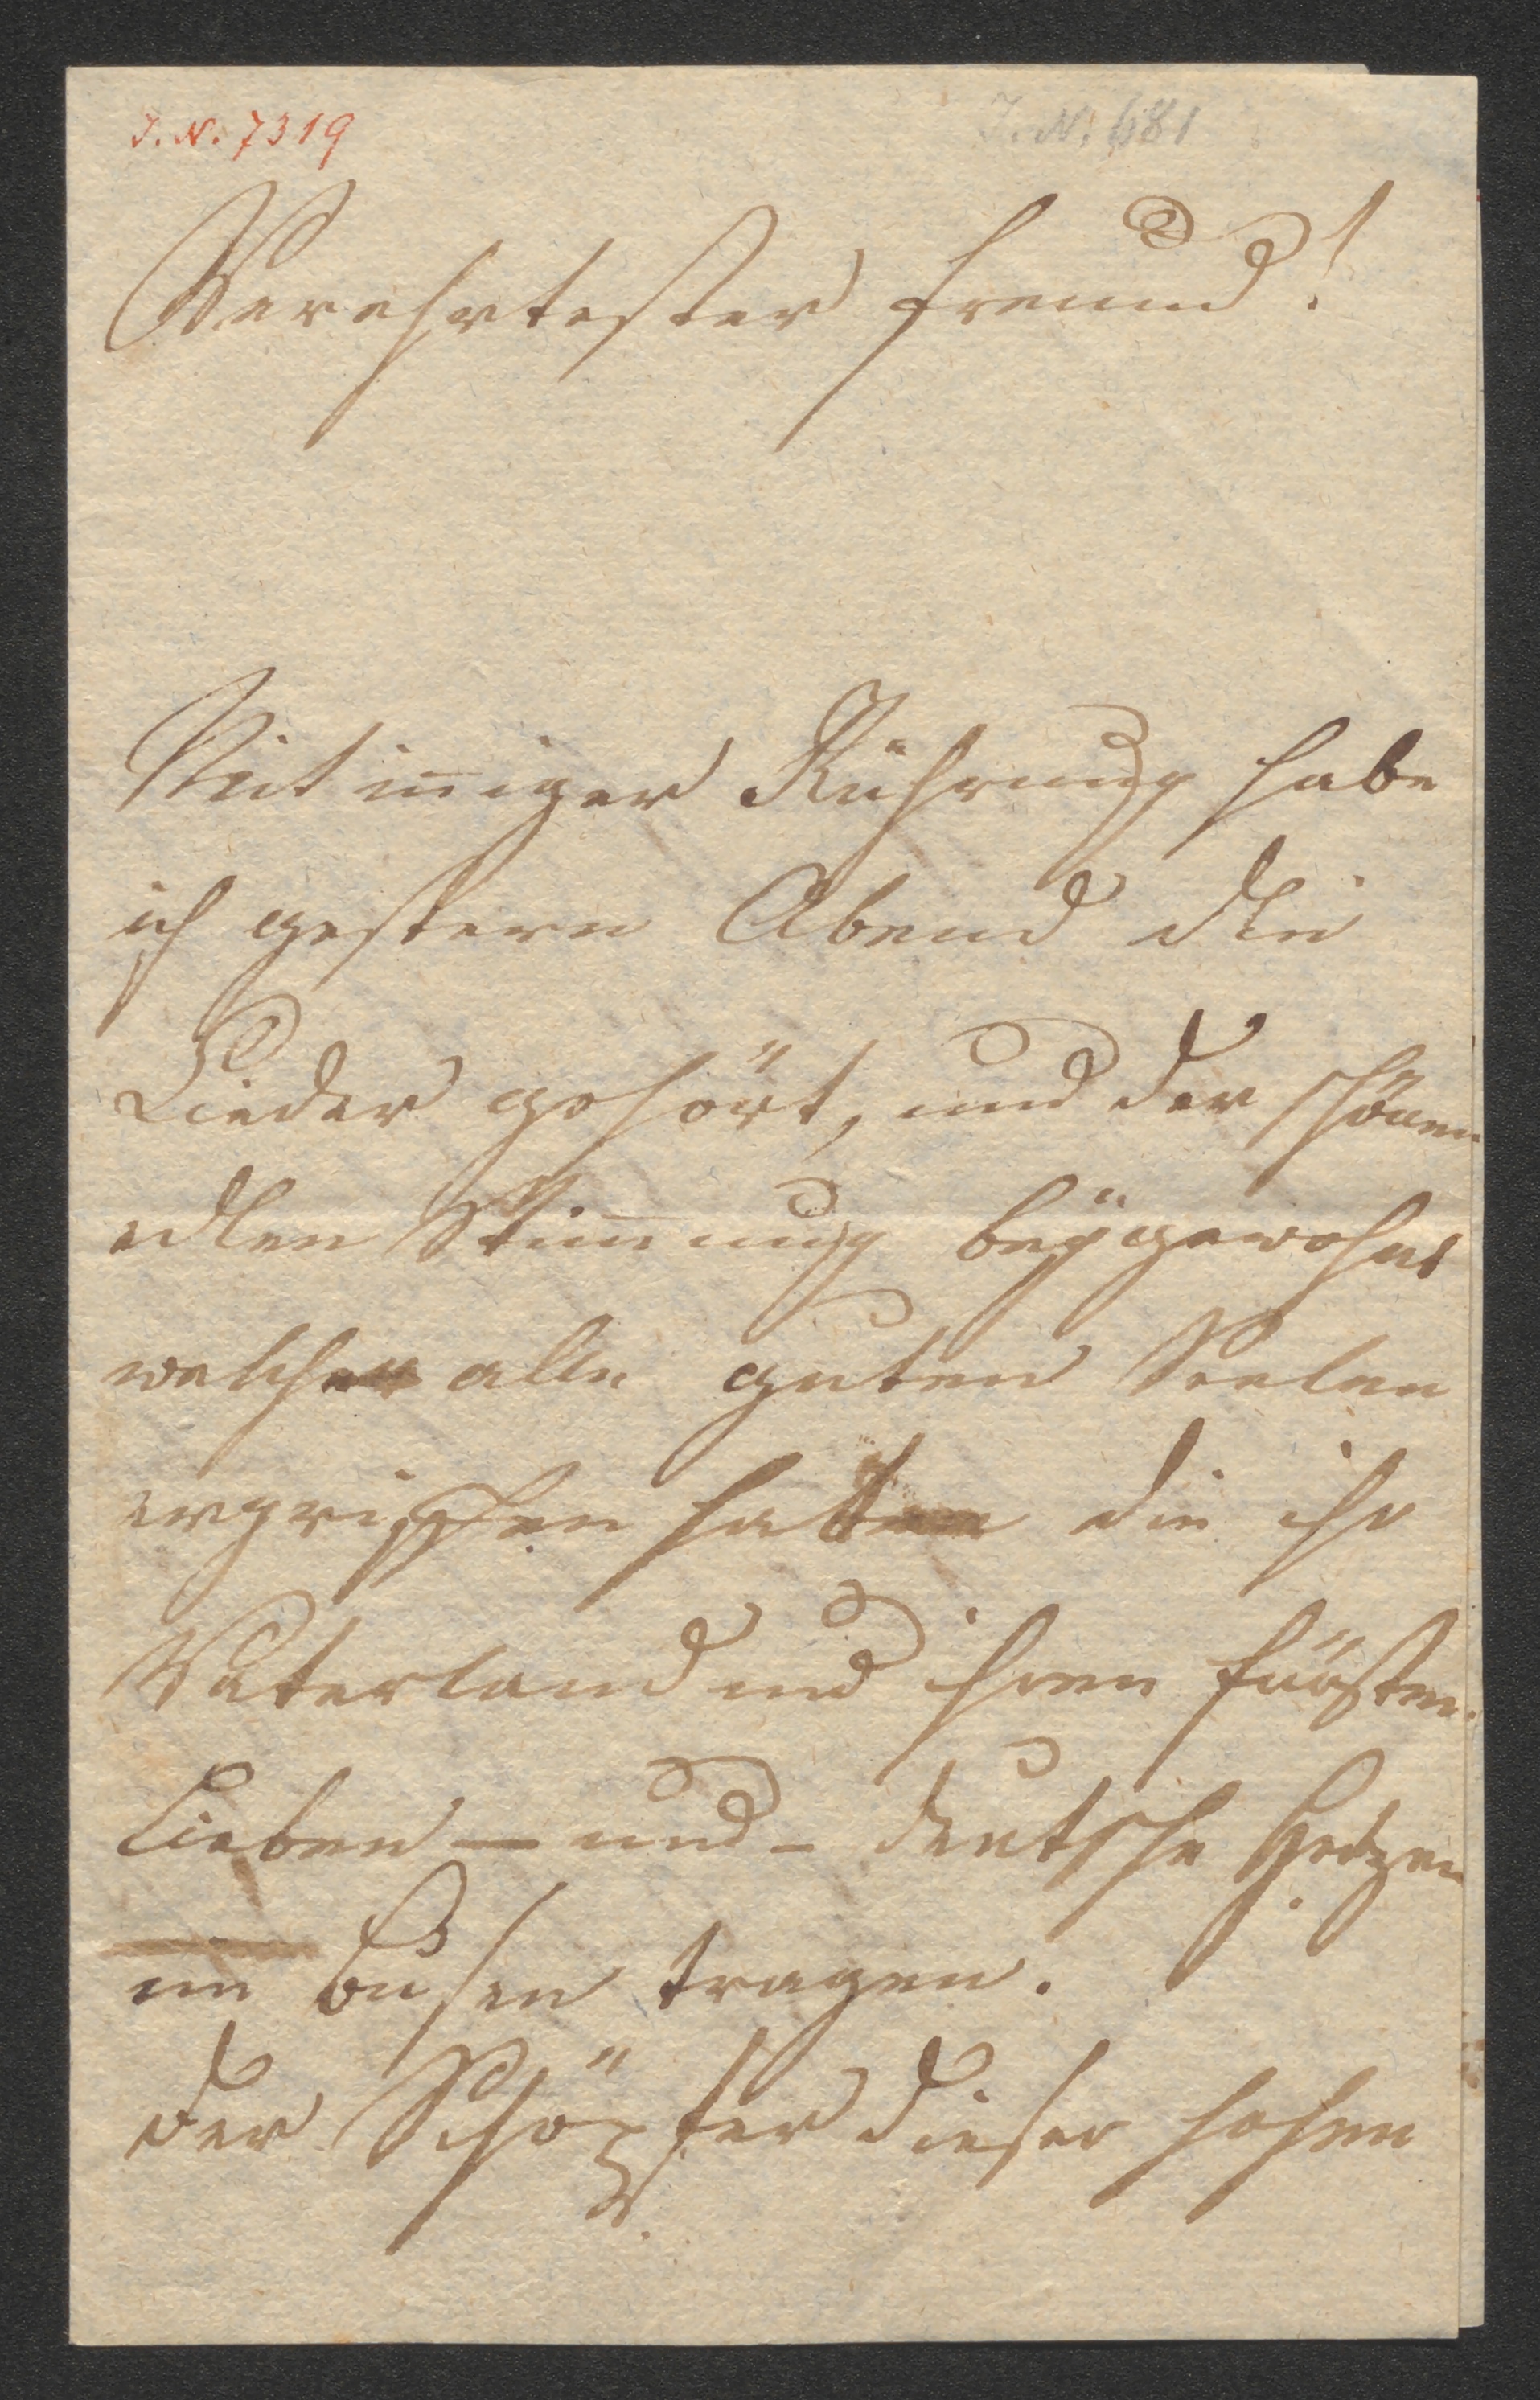 J. N. 7319
J. N. 681
Verehrtester Freund!
Mit iñiger Rührung habe
ich gestern Abend die
Lieder gehört, und der schönen
edlen Stim̄ung beÿgewohnt
welche alle guten Seelen
ergriffen hatte die ihr
Vaterland und ihren Fürsten
lieben – und – deutsche Herzen
im Busen tragen.
Der Schöpfer dieser hohen